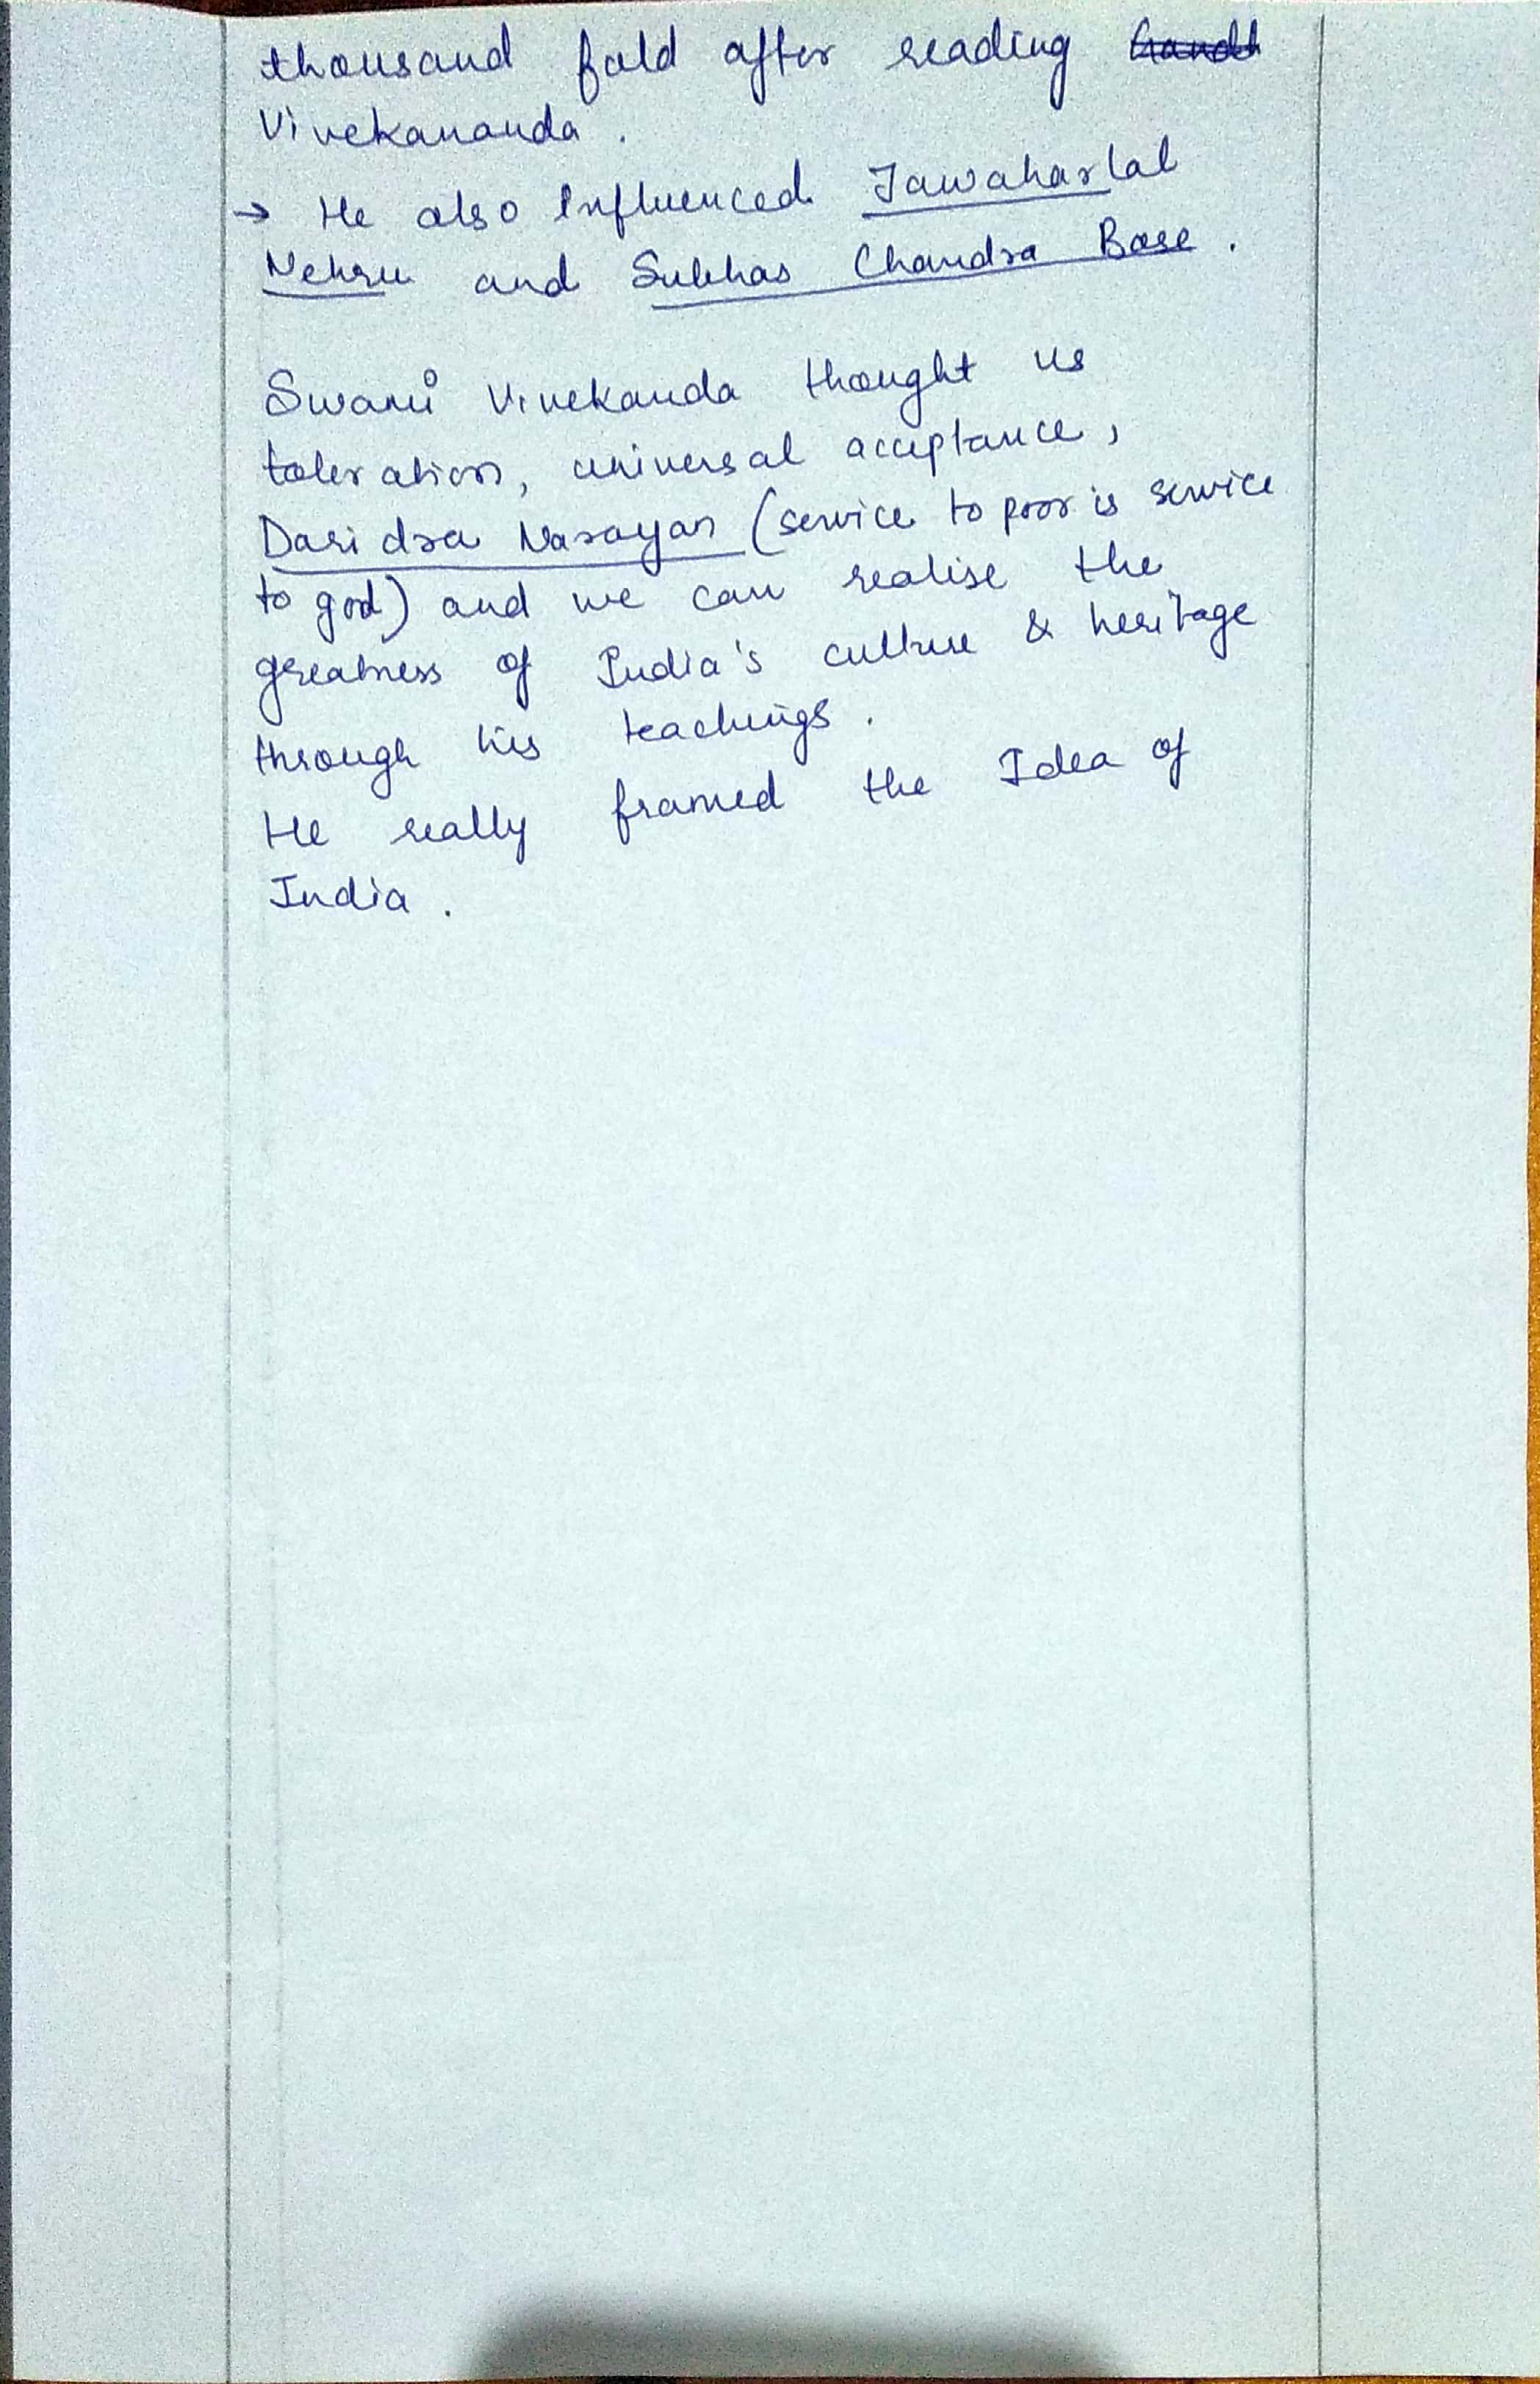 thousand fold after reading
Vivekananda.
→ He also Influenced Jawaharlal
Nehru and Subhas Chandra Bose.
Swami Vivekanda thought us
toleration, universal acceptance,
Daridra Narayan (service to poor is service
to god) and we can realise the
greatness of India's culture & heritage
through his teachings.
He really framed the Idea of
India.